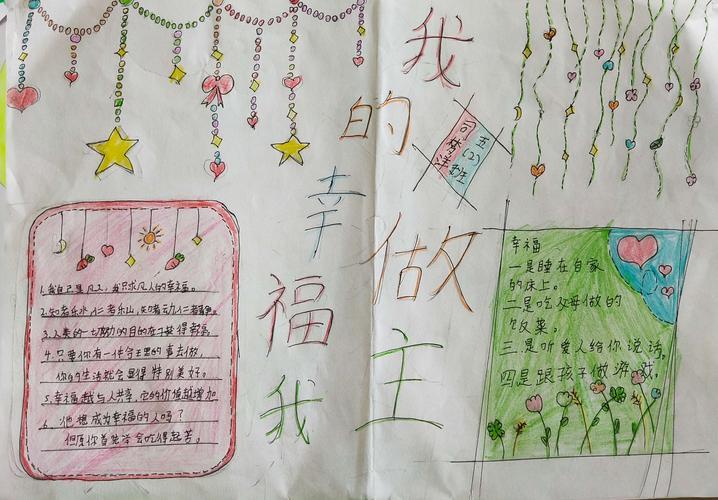 我的幸福我做主
五(2)班
司梦洋
1.我自己是凡人,我只求凡人的幸福。
2.知者乐水,仁者乐山,知者动,仁者静。
3.人类的一切努力的目的在于获得幸福。
4.只要你有一件合理的事去做,
你的生活就会显得特别美好。
5.幸福越与人共享,它的价值越增加
6.他想成为幸福的人吗?
但愿你首先学会吃得起苦。
幸福
一是睡在自家
的床上。
二是吃父母做的
饭菜。
三.是听爱人给你说话。
四是跟孩子做游戏。